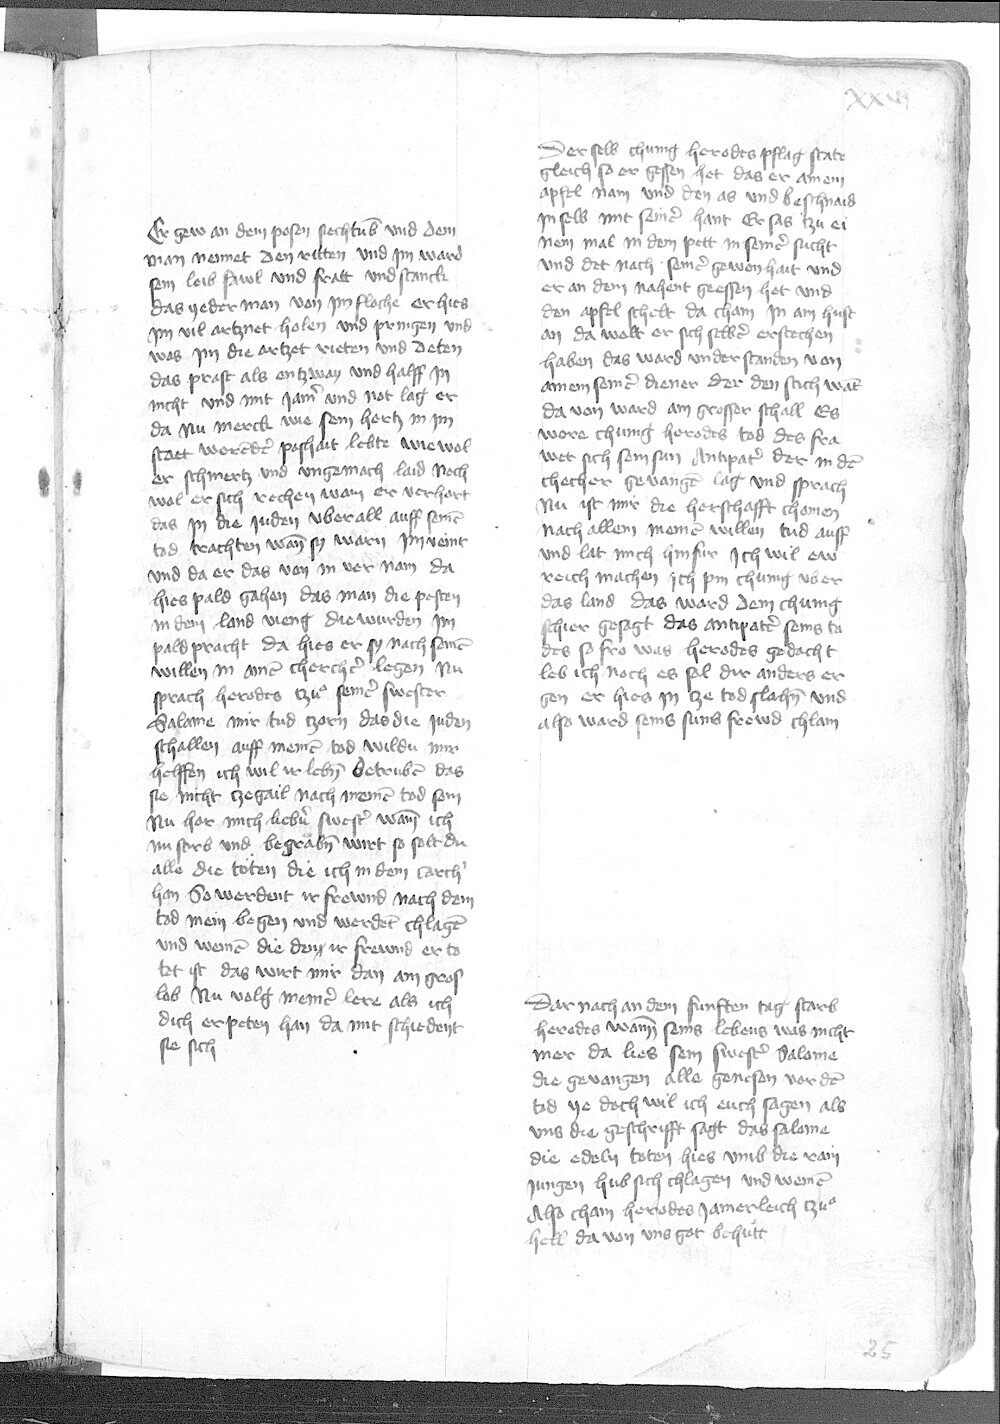 xxvj
Er gew an dem posen siechtūb und dem
man nennet den ritten und jm ward
sein leib fawl und fratt und stanck
das yederman von jm floche er hies
jm vil artznet holen und pringen und
was jm die artzet rieten und deten
das prast als entzway und halff jn
nicht und mit jam̄ und not lag er
da Nu merck wie sein hertz in jm
staet werēdē poshait lebte wie wol
er schmertz und ungemach laid Noch
wol er sich rechen wan er verhort
das jn die juden uberall auff seinē
tod trachten wan̄ sy warn jm veint
und da er das von in ver nam da
hies pald gahen das man die pesten
in dem land vieng die wurden jm
pald pracht da hies er sy nach seinē
willen in ainē cherchē legen Nu
sprach herodes tzu seinē swester
Salome mir tud tzorn das die juden
schallen auff meinē tod wildu mir
helffen ich wil ir lebn̄ betrubē das
sie nicht tzegail nach meinē tod sein
Nu hor mich liebū swestē wann̄ ich
nu starb und begrabn̄ wirt so solt du
alle die töten die ich in dem carch
han So werdent ir frewnd nach dem
tod mein begen und werdēt chlagē
und weinē die den ir frewnd er to
tet ist das wirt mir dan ain gros
lob Nu volg meinē lere als ich
dich erpeten han da mit schiedent
sie sich
Der selb chunig herodes pflag state
gleich so er gessen het das er ainem
apfel nam und den as und beschnaid
jn selb mit seinē hant Er sas tzu ei
nem mal in dem pett in seinē sucht
und det nach seinē gewonhait und
er an dem nahent geessen het und
den apfel schelt da cham jn ain hust
an da wolt er sich selbē erstechen
haben das ward understanden von
ainem seinē diener der den stich wāt
da von ward ain grosser schall Es
were chunig herodes tod des fra
wet sich sein sun Antipatē der in dē
chercher gevangē lag und sprach
Nu ist mir die herschafft chomen
nach allem meinē willen tud auff
und lat mich hinfur Ich wil ew
reich machen jch pin chunig uber
das land das ward dem chunig
schier gesagt das antipatē seins to
des so fro was herodes gedacht
leb ich noch es sol dir anders er
gen er hies jn tze tod slahn̄ und
also ward seins suns frewd chlain
Dar nach an dem funften tag starb
herodes wann̄ seins lebens was nicht
mer da lies sein swestē Salome
die gevangen alle genesen vor dē
tod ye doch wil ich euch sagen als
uns die geschrifft sagt das salome
die edeln toten hies umb die rain
jungen hub sich chlagen und weinē
Also cham herodes jamerleich tzu
hell da von uns got behutt
25